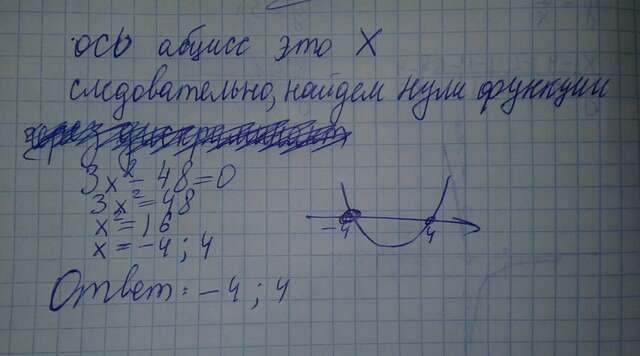 ось абцисс это X
следовательно, найдем нули функции
3x² - 48 = 0
3x² = 48
x² = 16
x = -4; 4
-4 4
Ответ: -4; 4